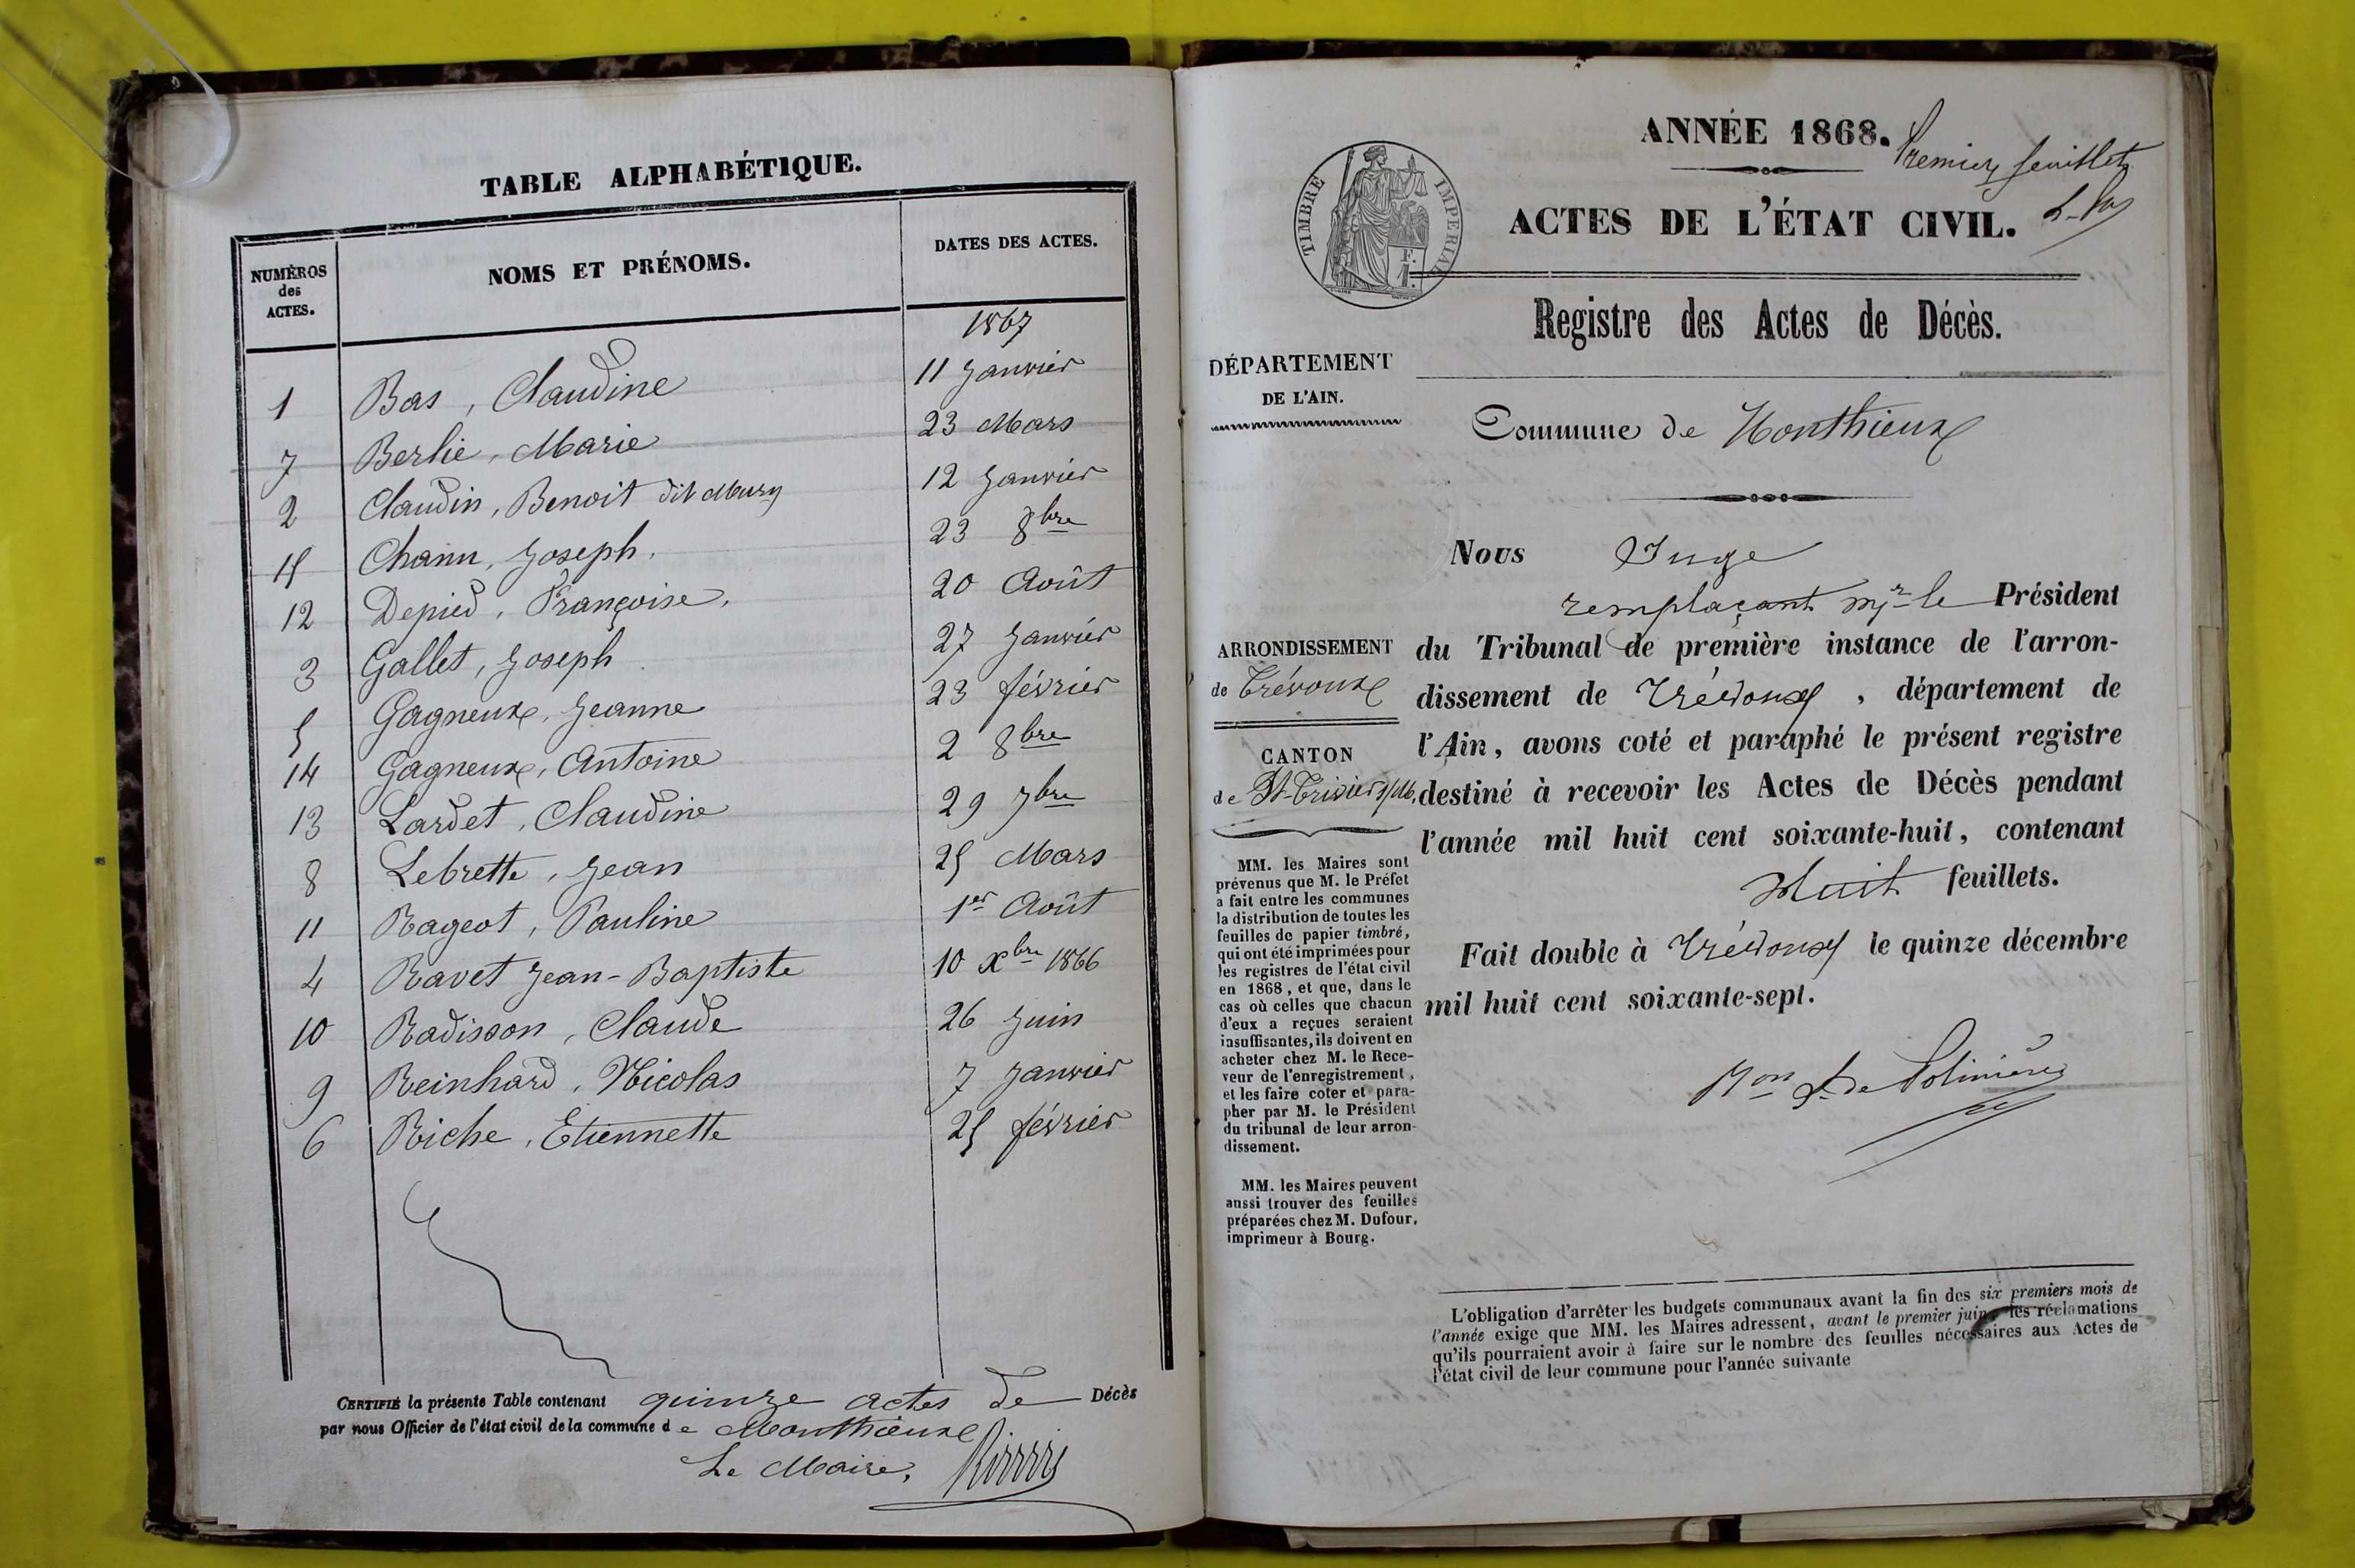 TABLE ALPHABÉTIQUE.
NUMÉROS des ACTES. NOMS ET PRÉNOMS. DATES DES ACTES.
1867
1 Bas, Claudine 11 Janvier
7 Berlie, Marie 23 Mars
2 Claudin, Benoit dit Mury 12 Janvier
15 Chanu, Joseph. 23 8bre
12 Depied, Françoise, 20 Août
3 Gallet, Joseph 27 Janvier
5 Gagneux, Jeanne 23 février
14 Gagneux, Antoine 2 8bre
13 Lardet, Claudine 29 7bre
8 Lebrette, Jean 25 Mars
11 Rageot, Pauline 1er Août
4 Ravet Jean-Baptiste 10 Xbre 1866
10 Radisson, Claude 26 Juin
9 Reinhard, Nicolas 7 Janvier
6 Riche, Etiennette 25 février
CERTIFIÉ la présente Table contenant quinze actes de Décès
par nous Officier de l'état civil de la commune de Monthieux
Le Maire,
ANNÉE 1868.
Premier feuillet
TIMBRE IMPERIAL
F.
1.
ACTES DE L'ÉTAT CIVIL.
Registre des Actes de Décès.
DÉPARTEMENT
DE L'AIN.
Commune de Monthieux
Nous Juge
remplaçant Mr le Président
du Tribunal de première instance de l'arron-
dissement de Trévoux, département de
l'Ain, avons coté et paraphé le présent registre
destiné à recevoir les Actes de Décès pendant
l'année mil huit cent soixante-huit, contenant
Huit feuillets.
Fait double à Trévoux le quinze décembre
mil huit cent soixante-sept.
ARRONDISSEMENT
de Trévoux
CANTON
de St-Trivier s/M.
MM. les Maires sont
prévenus que M. le Préfet
a fait entre les communes
la distribution de toutes les
feuilles de papier timbré,
qui ont été imprimées pour
les registres de l'état civil
en 1868, et que, dans le
cas où celles que chacun
d'eux a reçues seraient
insuffisantes, ils doivent en
acheter chez M. le Rece-
veur de l'enregistrement,
et les faire coter et para-
pher par M. le Président
du tribunal de leur arron-
dissement.
MM. les Maires peuvent
aussi trouver des feuilles
préparées chez M. Dufour,
imprimeur à Bourg.
L'obligation d'arrêter les budgets communaux avant la fin des six premiers mois de
l'année exige que MM. les Maires adressent, avant le premier juin, les réclamations
qu'ils pourraient avoir à faire sur le nombre des feuilles nécessaires aux Actes de
l'état civil de leur commune pour l'année suivante